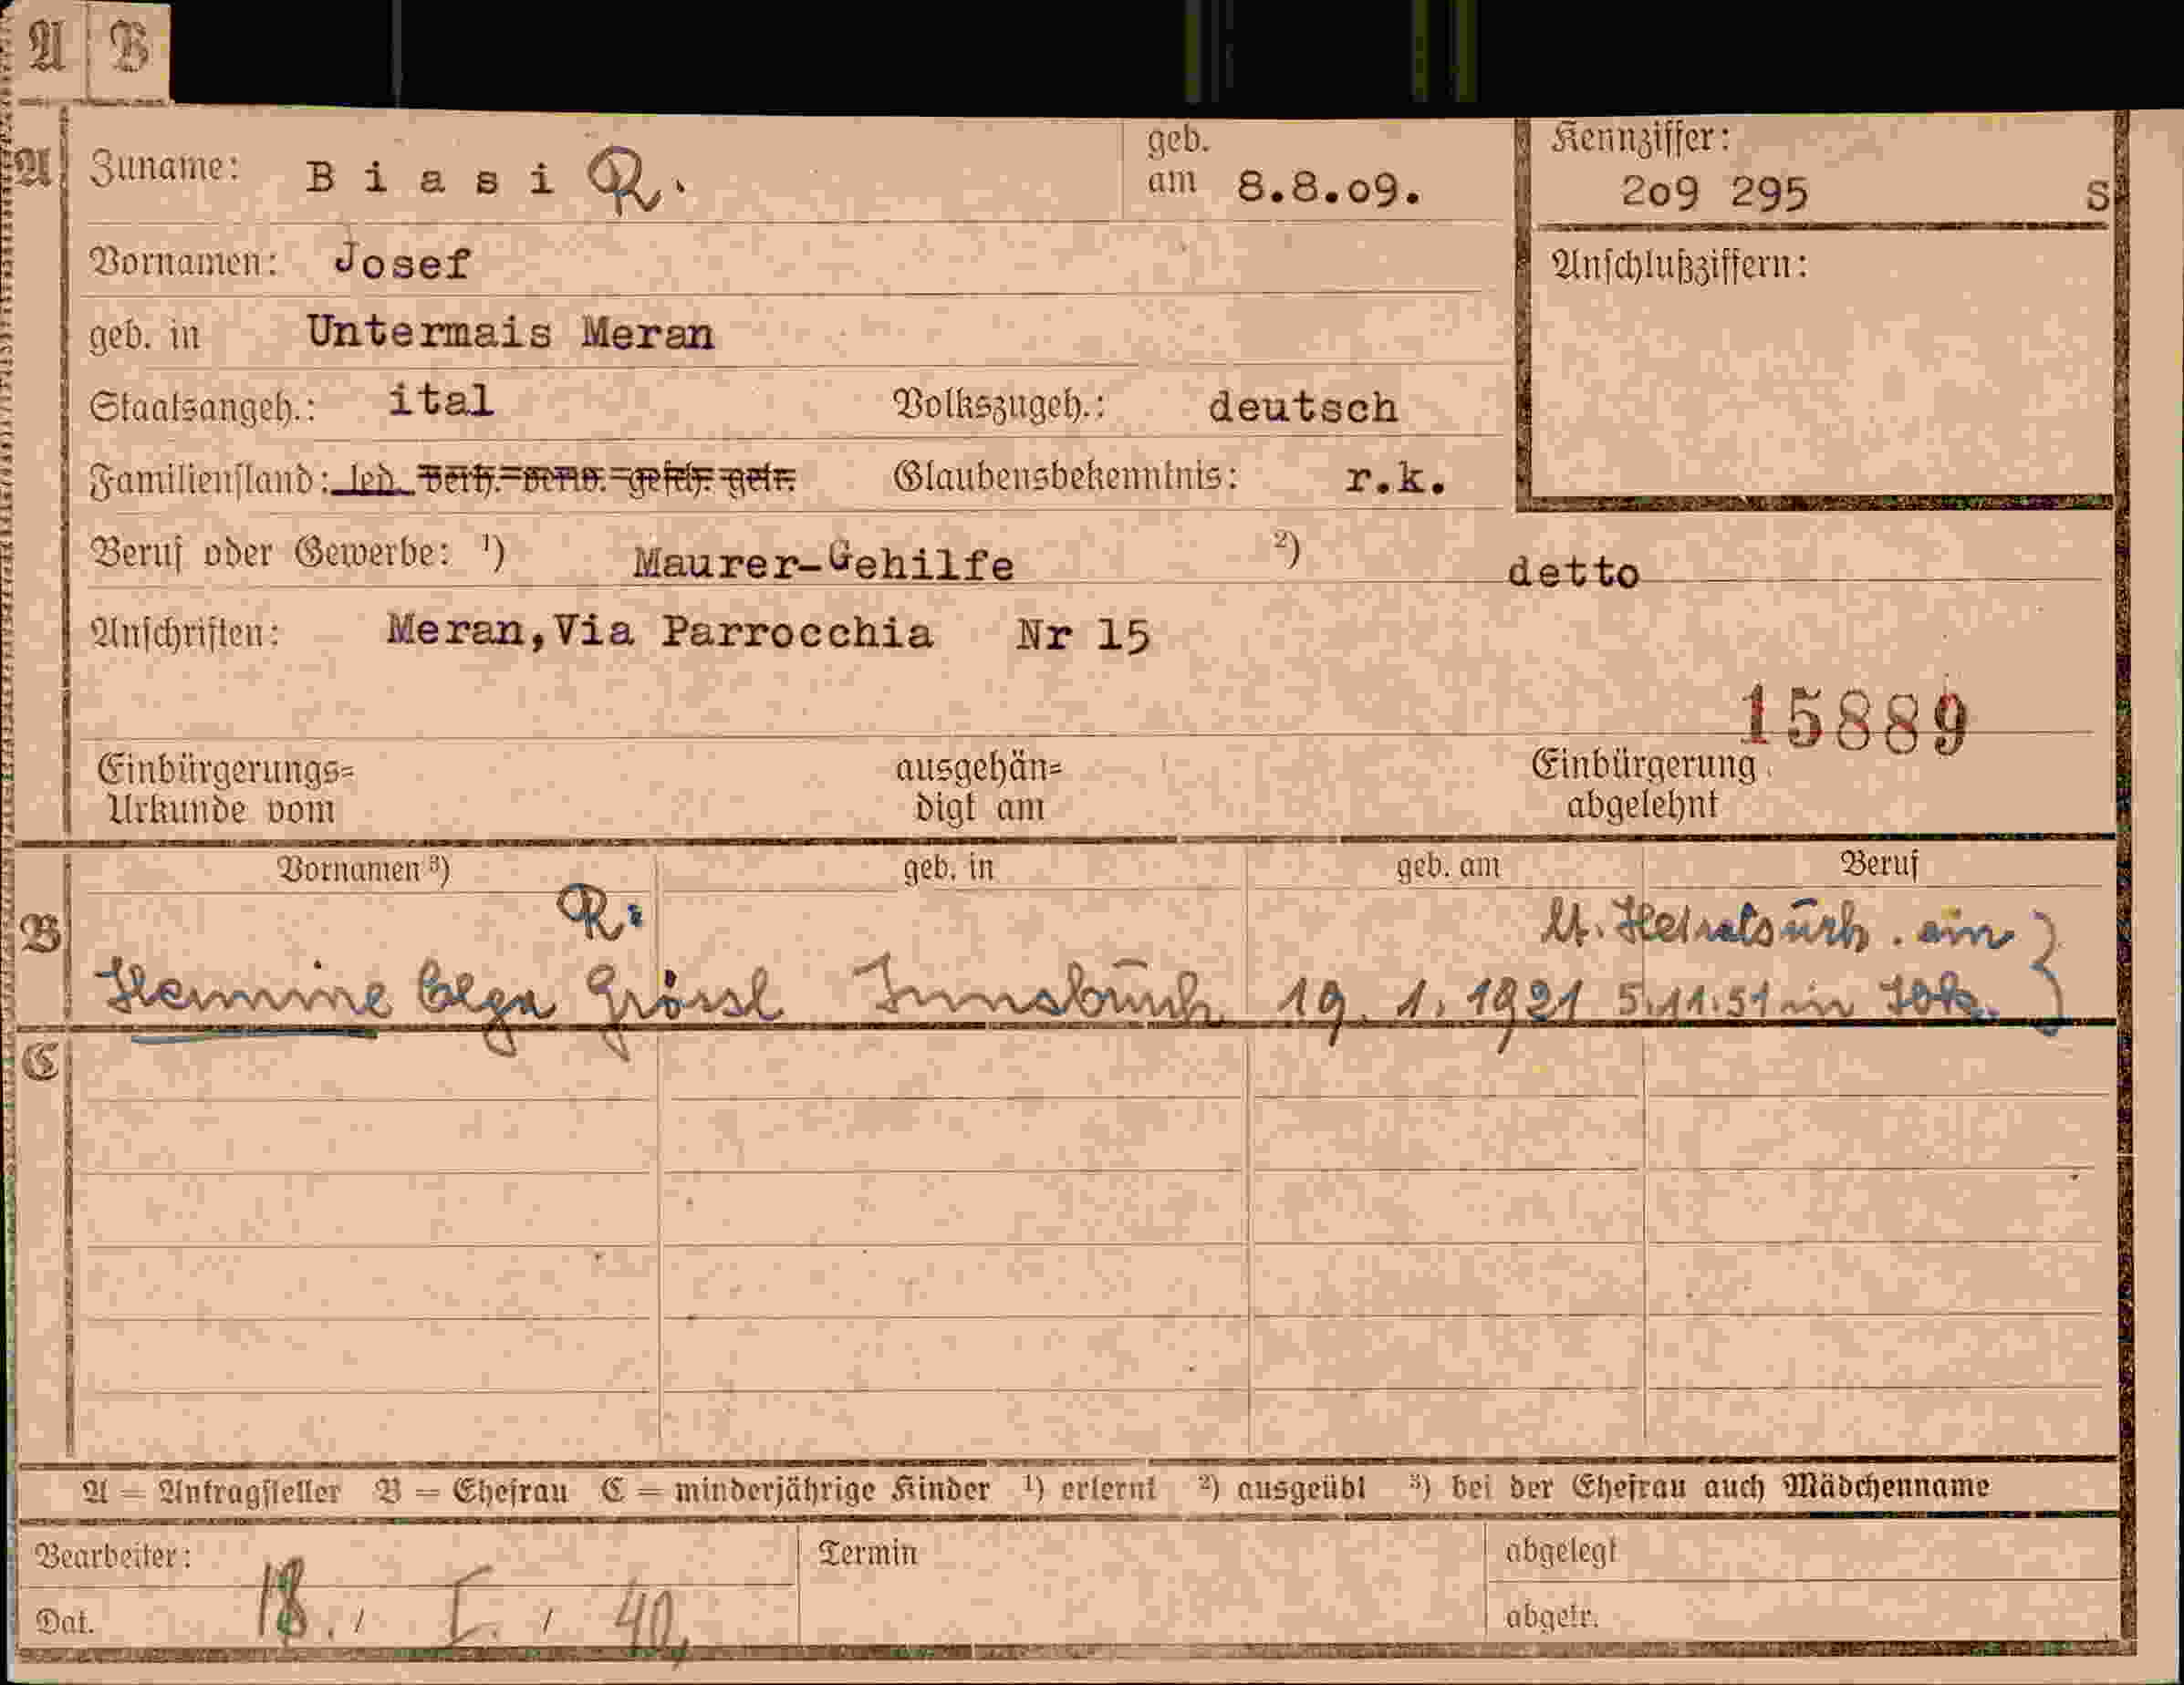 A B
A Zuname: Biasi R. geb. am 8.8.09. Kennziffer: 209 295 S
Vornamen: Josef Anschlußziffern:
geb. in Untermais Meran
Staatsangeh.: ital Volkszugeh.: deutsch
Familienstand: led. verh. verw. gesch. getr. Glaubensbekenntnis: r.k.
Beruf oder Gewerbe: ¹) Maurer-Gehilfe ²) detto
Anschriften: Meran, Via Parrocchia Nr 15
15889
Einbürgerungs= ausgehän= Einbürgerung
Urkunde vom digt am abgelehnt
Vornamen ³) geb. in geb. am Beruf
B R. lt. Heiratsurk. ein
Hermine Olga Grössl Innsbruck 19. 1. 1921 5.11.51 in
C
A = Antragsteller B = Ehefrau C = minderjährige Kinder ¹) erlernt ²) ausgeübt ³) bei der Ehefrau auch Mädchenname
Bearbeiter: Termin abgelegt
Dat. 18. I. 40, abgetr.